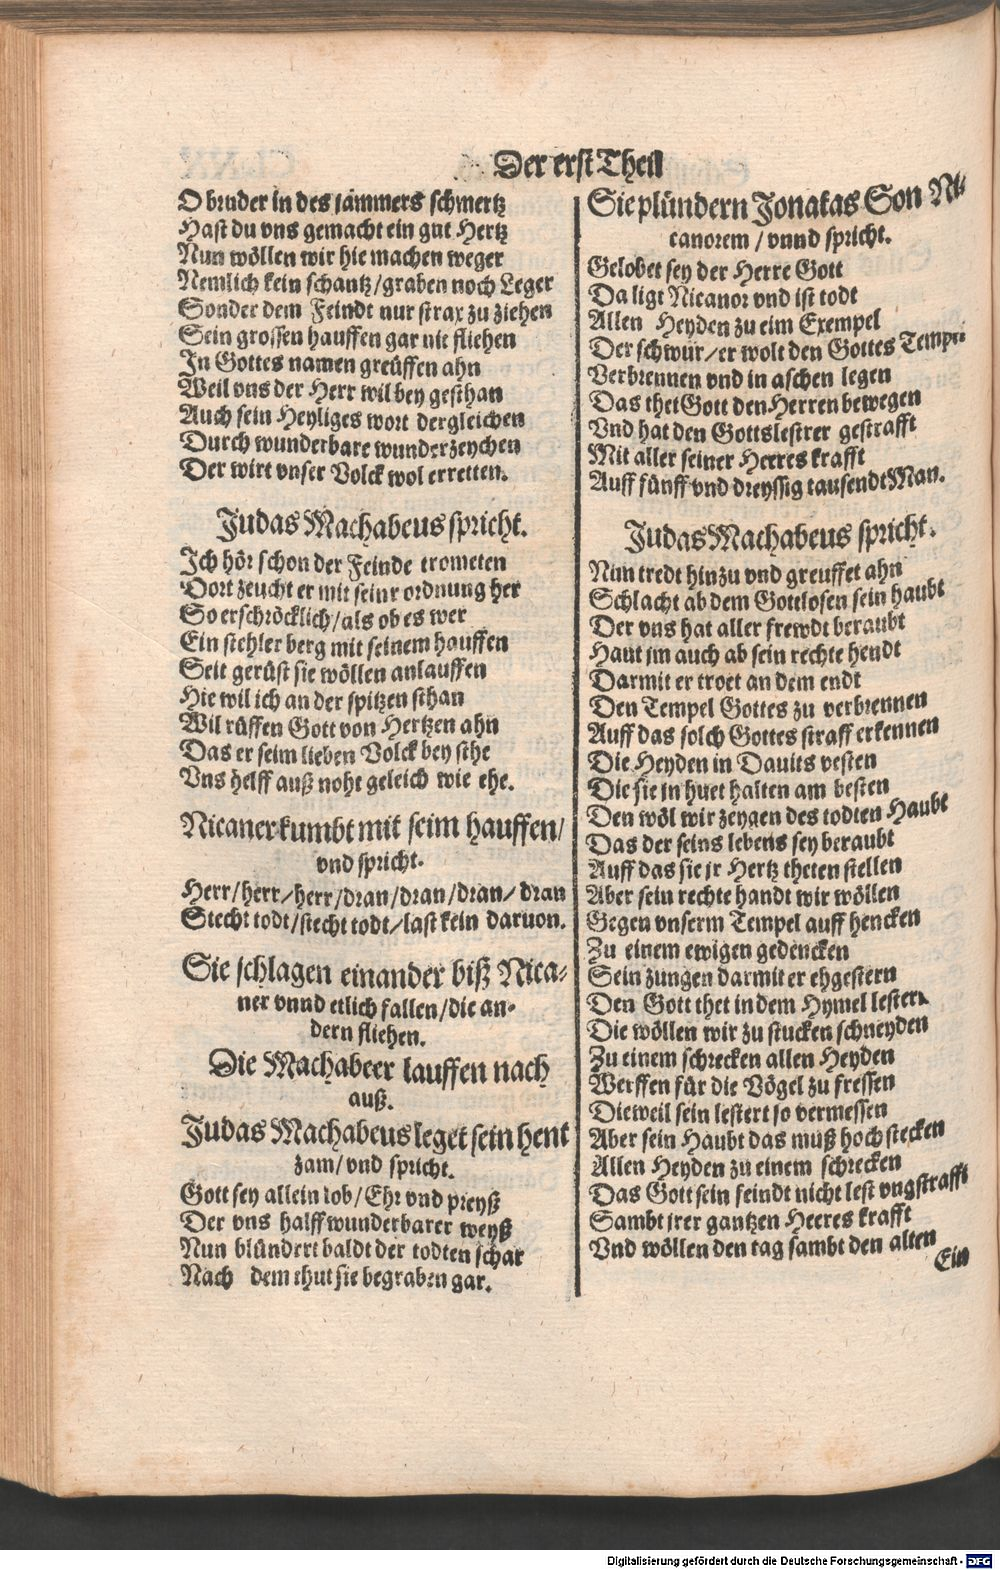 Der erst Theil
O bruder in des jammers schmertz
Hast du vns gemacht ein gut Hertz
Nun wöllen wir hie machen weger
Nemlich kein schantz/graben noch Leger
Sonder dem Feindt nur strax zu ziehen
Sein grossen hauffen gar nit fliehen
In Gottes namen greüffen ahn
Weil vns der Herr wil bey gesthan
Auch sein Heyliges wort dergleichen
Durch wunderbare wunderzeychen
Der wirt vnser Volck wol erretten.
Judas Machabeus spricht.
Ich hör schon der Feinde trometen
Dort zeucht er mit seinr ordnung her
So erschröcklich/als ob es wer
Ein stehler berg mit seinem hauffen
Seit gerüst sie wöllen anlauffen
Hie wil ich an der spitzen sthan
Wil rüffen Gott von Hertzen ahn
Das er seim lieben Volck bey sthe
Vns helff auß noht geleich wie ehe.
Nicaner kumbt mit seim hauffen/
vnd spricht.
Herr/herr/herr/dran/dran/dran/dran
Stecht todt/stecht todt/last kein daruon.
Sie schlagen einander biß Nica-
ner vnnd etlich fallen/die an-
dern fliehen.
Die Machabeer lauffen nach
auß.
Judas Machabeus leget sein hent
zam/vnd spricht.
Gott sey allein lob/Ehr vnd preyß
Der vns halff wunderbarer weyß
Nun blündert baldt der todten schar
Nach dem thut sie begraben gar.
Sie plündern Jonatas Son Ni-
canorem/vnnd spricht.
Gelobet sey der Herre Gott
Da ligt Nicanor vnd ist todt
Allen Heyden zu eim Exempel
Der schwur/er wolt den Gottes Tempel
Verbrennen vnd in aschen legen
Das thet Gott den Herren bewegen
Vnd hat den Gottslestrer gestrafft
Mit aller seiner Heeres krafft
Auff fünff vnd dreyssig tausendt Man.
Judas Machabeus spricht.
Nun tredt hinzu vnd greuffet ahn
Schlacht ab dem Gottlosen sein haubt
Der vns hat aller frewdt beraubt
Haut jm auch ab sein rechte hendt
Darmit er troet an dem endt
Den Tempel Gottes zu verbrennen
Auff das solch Gottes straff erkennen
Die Heyden in Dauits vesten
Die sie in huet halten am besten
Den wöl wir zeygen des todten Haubt
Das der seins lebens sey beraubt
Auff das sie jr Hertz theten stellen
Aber sein rechte handt wir wöllen
Gegen vnserm Tempel auff hencken
Zu einem ewigen gedencken
Sein zungen darmit er ehgestern
Den Gott thet in dem Hymel lestern
Die wöllen wir zu stucken schneyden
Zu einem schrecken allen Heyden
Werffen für die Vögel zu fressen
Dieweil sein lestert so vermessen
Aber sein Haubt das muß hoch stecken
Allen Heyden zu einem schrecken
Das Gott sein feindt nicht lest vngstrafft
Sambt jrer gantzen Heeres krafft
Vnd wöllen den tag sambt den alten
Ein
Digitalisierung gefördert durch die Deutsche Forschungsgemeinschaft - DFG